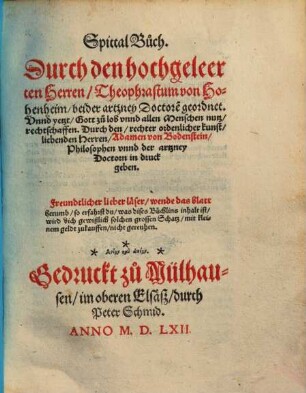 Spittal Bůch.
Durch den hochgeleer
ten Herren / Theophrastum von Ho-
henheim / beider artzney Doctorē geordnet.
Vnnd yetzt / Gott zů lob vnnd allen Menschen nutz /
rechtschaffen. Durch den / rechter ordenlicher kunst /
liebenden Herren / Adamen von Bodenstein /
Philosophen vnnd der artzney
Doctorn in druck
geben.
Freundtlicher lieber läser / wende das blatt
herumb / so erfahrst du / was dises Bůchlins inhalt ist /
wird dich gewißlich solchen grossen schatz / mit klei-
nem geldt zukauffen / nicht gerewen.
Gedruckt zů Mülhau-
sen / im oberen Elsäß / durch
Peter Schmid.
ANNO M. D. LXII.